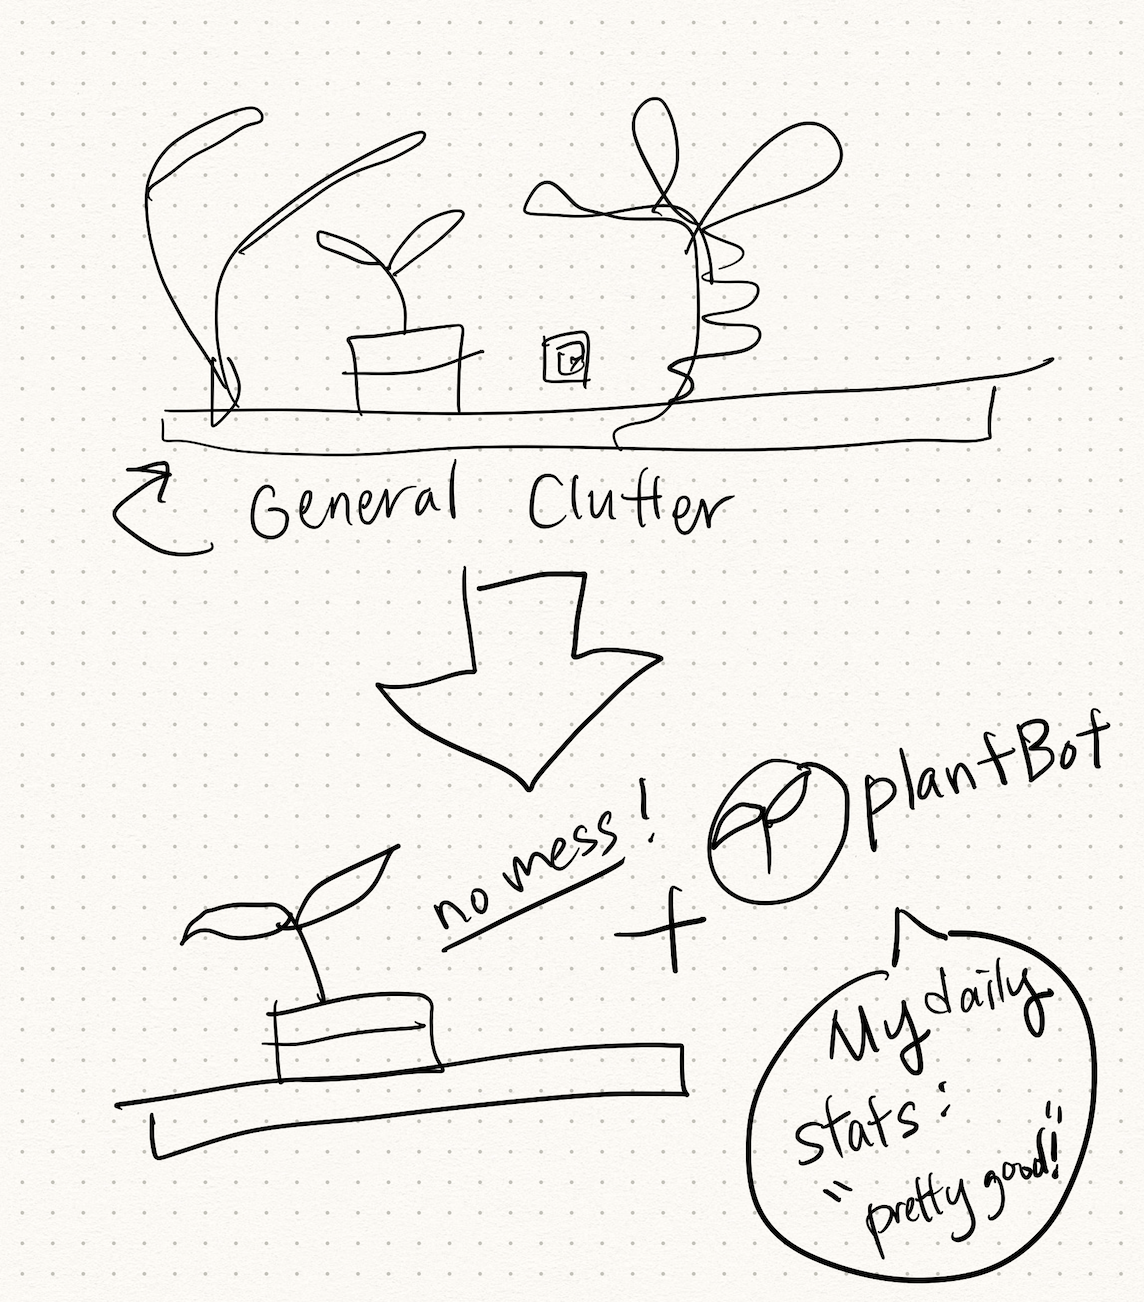 General Clutter
no mess!
plantBot
My daily
stats:
"pretty good!"